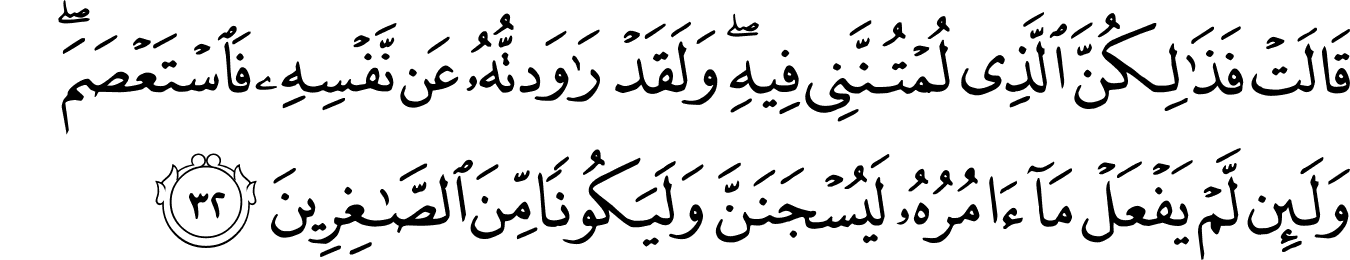 قَالَتْ فَذَٰلِكُنَّ ٱلَّذِى لُمْتُنَّنِى فِيهِ ۖ وَلَقَدْ رَٰوَدتُّهُۥ عَن نَّفْسِهِۦ فَٱسْتَعْصَمَ ۖ
وَلَئِن لَّمْ يَفْعَلْ مَآ ءَامُرُهُۥ لَيُسْجَنَنَّ وَلَيَكُونًا مِّنَ ٱلصَّـٰغِرِينَ ٣٢